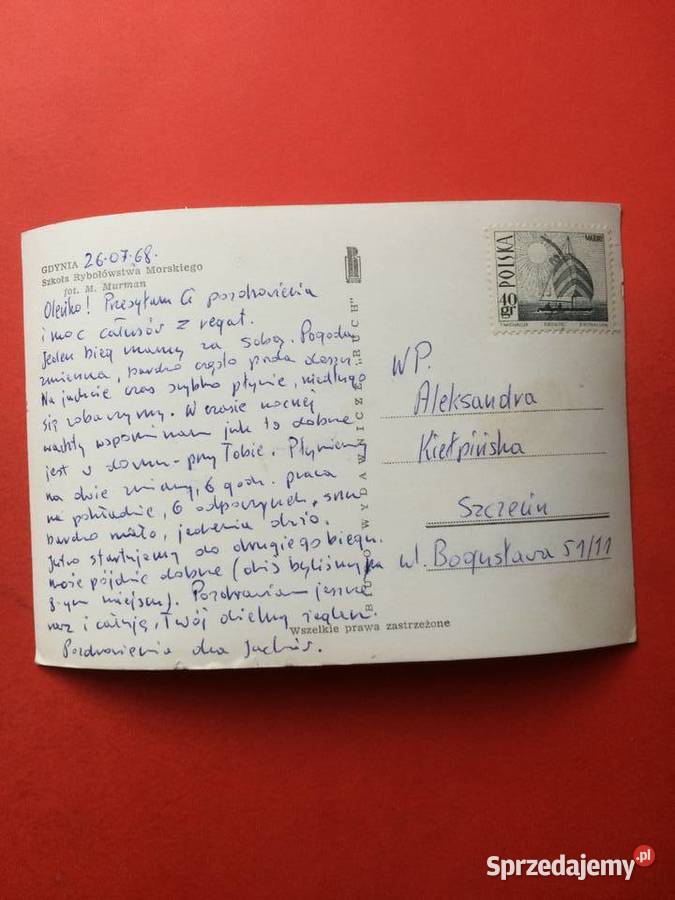 26.07.68.
GDYNIA
Szkoła Rybołówstwa Morskiego
fot. M. Murman
Oleńko! Przesyłam Ci pozdrowienia
i moc całusów z regat.
Jeden bieg mamy za sobą. Pogoda
zmienna, bardzo często pada deszcz.
Na jachcie czas szybko płynie, niedługo
się zobaczymy. W czasie nocnej
wachty wspominam jak to dobrze
jest w domu - przy Tobie. Płyniemy
na dwie zmiany, 6 godz. praca
na pokładzie, 6 odpoczynek, snu
bardzo mało, jedzenia dużo.
Jutro startujemy do drugiego biegu.
może pójdzie dobrze (dziś byliśmy na
8-ym miejscu). Pozdrawiam jeszcze
raz i całuję, Twój dzielny żeglarz.
Pozdrowienia dla
BIURO WYDAWNICZE „RUCH"
Wszelkie prawa zastrzeżone
POLSKA
40 gr
WP.
Aleksandra
Kiełpińska
Szczecin
ul. Bogusława 51/11
Sprzedajemy.pl